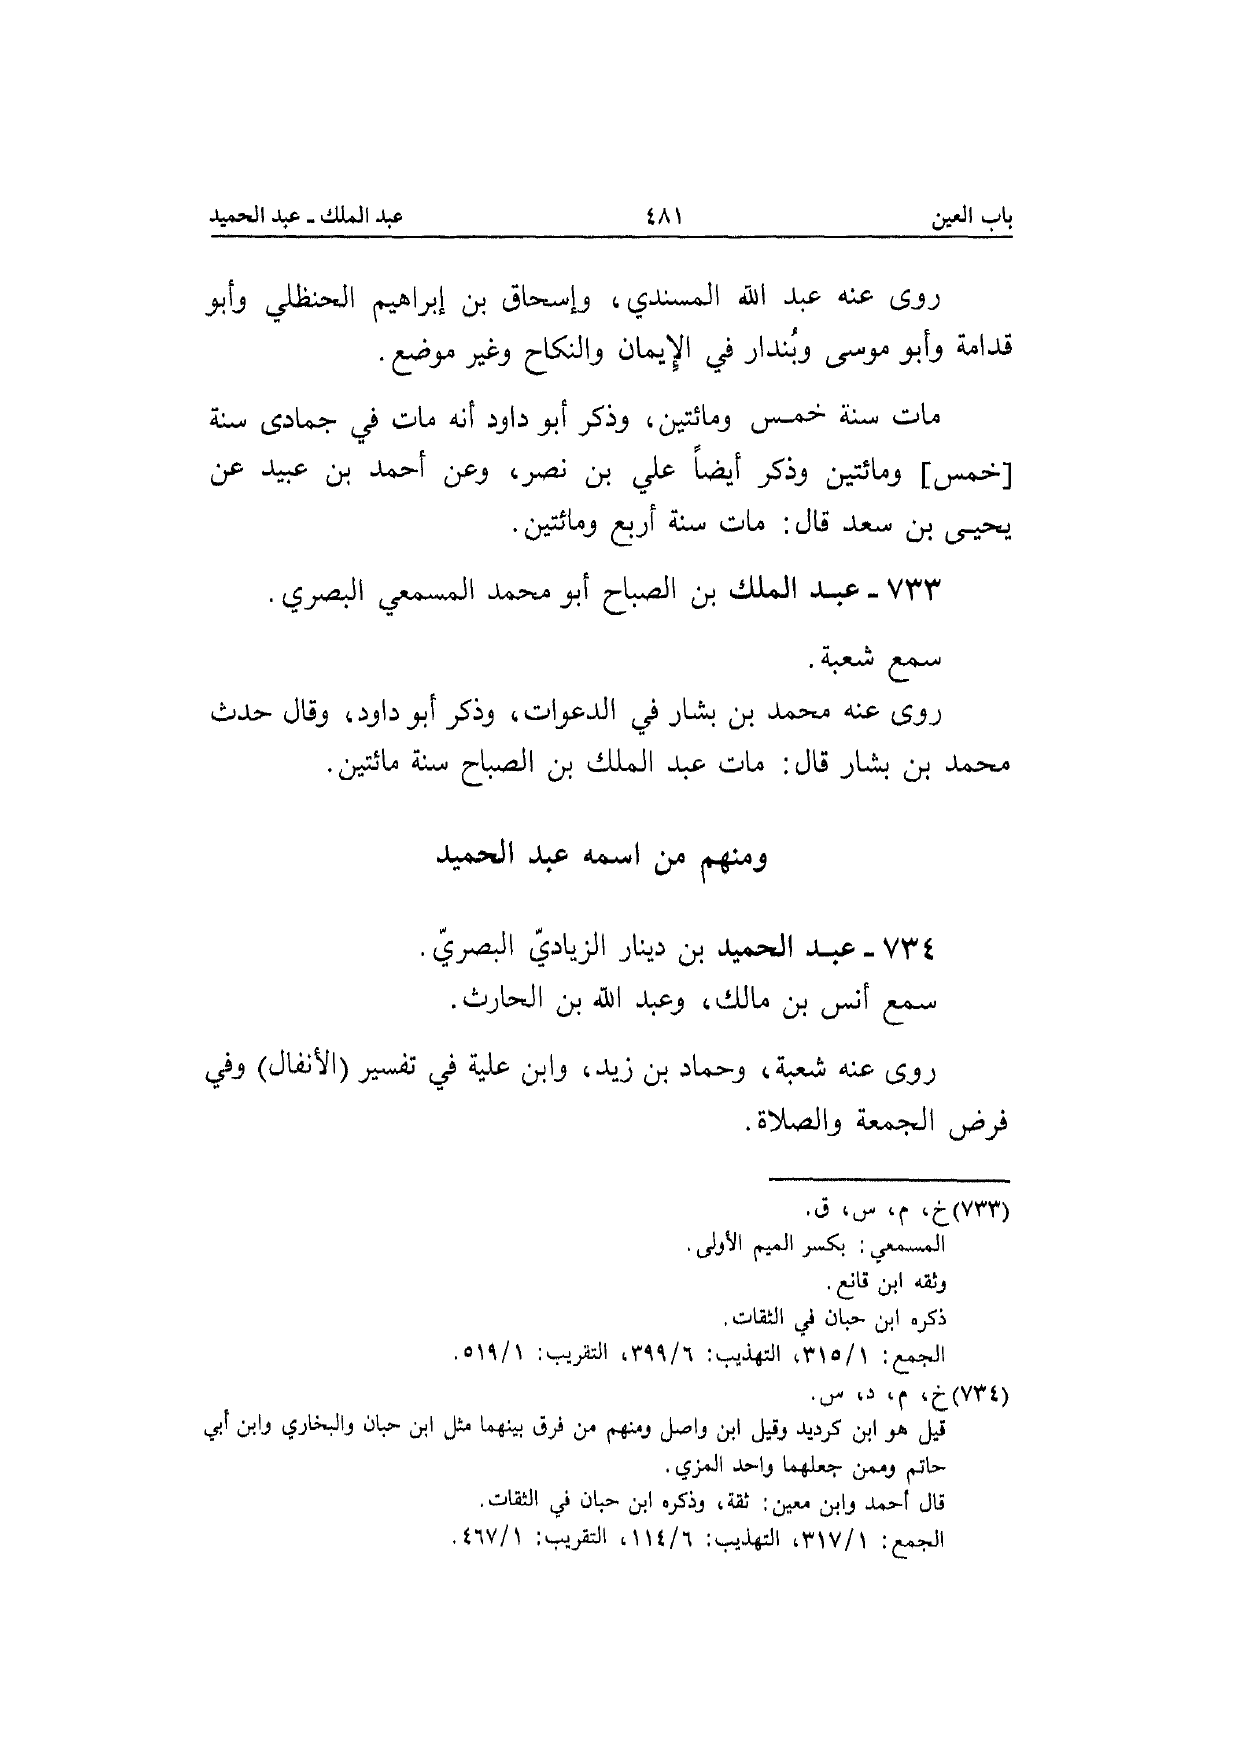 باب العين ٤٨١ عبد الملك ـ عبد الحميد
روى عنه عبد الله المسندي، وإسحاق بن إبراهيم الحنظلي وأبو
قدامة وأبو موسى وبُندار في الإيمان والنكاح وغير موضع.
مات سنة خمس ومائتين، وذكر أبو داود أنه مات في جمادى سنة
[خمس] ومائتين وذكر أيضاً علي بن نصر، وعن أحمد بن عبيد عن
يحيى بن سعد قال: مات سنة أربع ومائتين.
٧٣٣ ـ عبد الملك بن الصباح أبو محمد المسمعي البصري.
سمع شعبة.
روى عنه محمد بن بشار في الدعوات، وذكر أبو داود، وقال حدث
محمد بن بشار قال: مات عبد الملك بن الصباح سنة مائتين.
ومنهم من اسمه عبد الحميد
٧٣٤ ـ عبد الحميد بن دينار الزياديّ البصريّ.
سمع أنس بن مالك، وعبد الله بن الحارث.
روى عنه شعبة، وحماد بن زيد، وابن علية في تفسير (الأنفال) وفي
فرض الجمعة والصلاة.
(٧٣٣) خ، م، س، ق.
المسمعي: بكسر الميم الأولى.
وثقه ابن قانع.
ذكره ابن حبان في الثقات.
الجمع: ٣١٥/١، التهذيب: ٣٩٩/٦، التقريب: ٥١٩/١.
(٧٣٤) خ، م، د، س.
قيل هو ابن كرديد وقيل ابن واصل ومنهم من فرق بينهما مثل ابن حبان والبخاري وابن أبي
حاتم وممن جعلهما واحد المزي.
قال أحمد وابن معين: ثقة، وذكره ابن حبان في الثقات.
الجمع: ٣١٧/١، التهذيب: ١١٤/٦، التقريب: ٤٦٧/١.